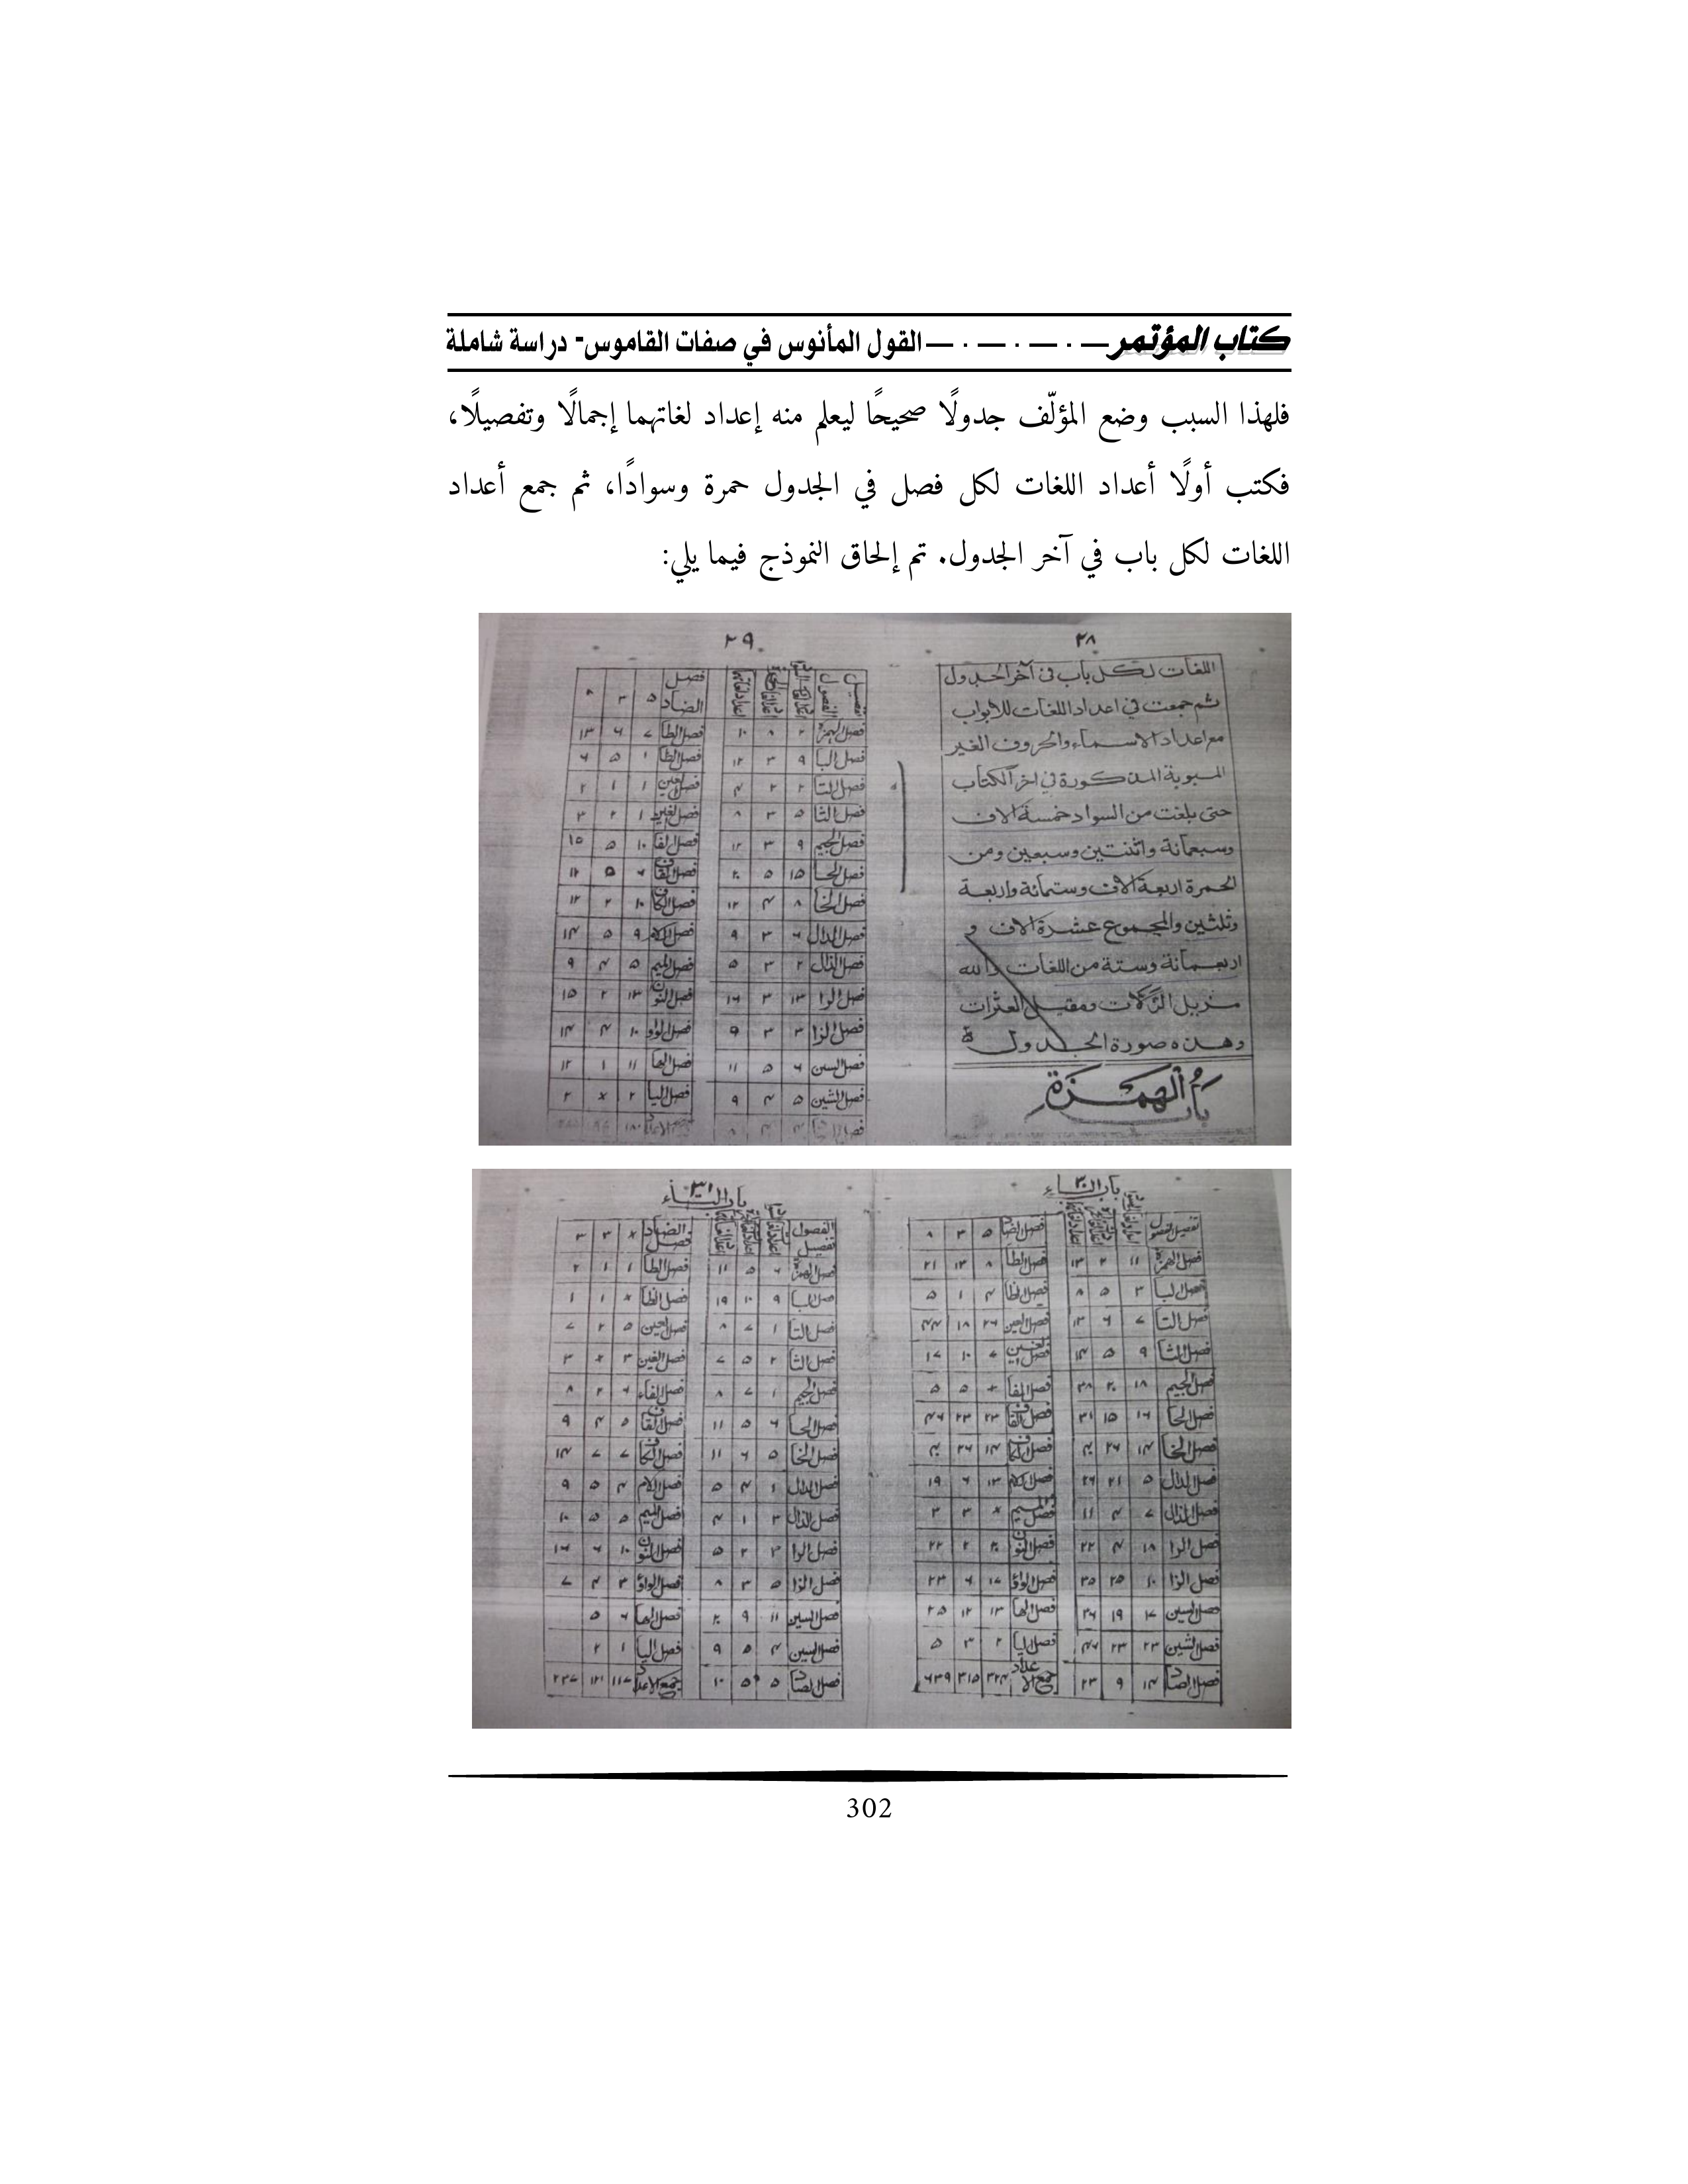 كتاب المؤتمر—٠—٠—٠—القول المأنوس في صفات القاموس- دراسة شاملة
فلهذا السبب وضع المؤلّف جدولًا صحيحًا ليعلم منه إعداد لغاتهما إجمالًا وتفصيلًا،
فكتب أولًا أعداد اللغات لكل فصل في الجدول حمرة وسوادًا، ثم جمع أعداد
اللغات لكل باب في آخر الجدول. تم إلحاق النموذج فيما يلي:
٢٨
اللغات لكل باب فى آخر الجدول
ثم جمعت فى اعداد اللغات للابواب
مع اعداد الاسماء والحروف الغير
المبوبة المذكورة فى اخر الكتاب
حتى بلغت من السواد خمسة الاف
وسبعمائة واثنتين وسبعين ومن
الحمرة اربعة الاف وستمائة واربعة
وثلثين والمجموع عشرة الاف و
اربعمائة وستة من اللغات والله
مزيل الزلات ومقيل العثرات
وهذه صورة الجدول
باب الهمزة
٢٩
تفصيل الفصول
فصل الهمزة ٢ ٨ ١٠
فصل البا ٩ ٣ ١٢
فصل التا ٢ ٢ ٤
فصل الثا ٥ ٣ ٨
فصل الجيم ٩ ٣ ١٢
فصل الحا ١٥ ٥ ٢٠
فصل الخا ٨ ٤ ١٢
فصل الدال ٦ ٣ ٩
فصل الذال ٢ ٣ ٥
فصل الرا ١٣ ٣ ١٦
فصل الزا
فصل السين ٦ ٥ ١١
فصل الشين ٥ ٤ ٩
فصل الضاد ٥ ٣ ٨
فصل الطا ٧ ٦ ١٣
فصل الظا ١ ٥ ٦
فصل العين ١ ١ ٢
فصل الغين ١ ٢ ٣
فصل الفا ١٠ ٥ ١٥
فصل القاف
فصل الكاف ١٠ ٢ ١٢
فصل اللام ٩ ٥ ١٤
فصل الميم ٥ ٤ ٩
فصل النون ١٣ ٢ ١٥
فصل الواو ١٠ ٤ ١٤
فصل الها ١١ ١ ١٢
فصل اليا ٢ × ٢
٣٠
باب الباء
تفصيل الفصول
فصل الهمزة ١١ ٢ ١٣
فصل البا ٣ ٥ ٨
فصل التا ٧ ٦ ١٣
فصل الثا ٩ ٥ ١٤
فصل الجيم ١٨ ٢٠ ٣٨
فصل الحا ١٦ ١٥ ٣١
فصل الخا ١٤ ٢٦ ٤٠
فصل الدال ٥ ٢١ ٢٦
فصل الذال ٧ ٤ ١١
فصل الرا ١٨ ٤ ٢٢
فصل الزا ١٠ ٢٥ ٣٥
فصل السين ١٧ ١٩ ٣٦
فصل الشين ٢٣ ٢٣ ٤٦
فصل الصاد ١٤ ٩ ٢٣
فصل الضاد ٥ ٣ ٨
فصل الطا ٨ ١٣ ٢١
فصل الظا ٤ ١ ٥
فصل العين ٢٦ ١٨ ٤٤
فصل الغين ٧ ١٠ ١٧
فصل الفا × ٥ ٥
فصل القاف ٢٣ ٢٣ ٤٦
فصل الكاف ١٤ ٢٦ ٤٠
فصل اللام ١٣ ٦ ١٩
فصل الميم × ٣ ٣
فصل النون ٢٠ ٢ ٢٢
فصل الواو ١٧ ٦ ٢٣
فصل الها ١٣ ١٢ ٢٥
فصل اليا ٢ ٣ ٥
جمع الاعداد ٣٢٤ ٣١٥ ٦٣٩
٣١
باب التاء
تفصيل الفصول
فصل الهمزة ٦ ٥ ١١
فصل البا ٩ ١٠ ١٩
فصل التا ١ ٧ ٨
فصل الثا ٢ ٥ ٧
فصل الجيم ١ ٧ ٨
فصل الحا ٦ ٥ ١١
فصل الخا ٥ ٦ ١١
فصل الدال ١ ٤ ٥
فصل الذال ٣ ١ ٤
فصل الرا ٣ ٢ ٥
فصل الزا ٥ ٣ ٨
فصل السين ١١ ٩ ٢٠
فصل الشين ٤ ٥ ٩
فصل الصاد ٥ ٥ ١٠
فصل الضاد × ٣ ٣
فصل الطا ١ ١ ٢
فصل الظا × ١ ١
فصل العين ٥ ٢ ٧
فصل الغين ٣ × ٣
فصل الفاء ٦ ٢ ٨
فصل القاف ٥ ٤ ٩
فصل الكاف ٧ ٧ ١٤
فصل اللام ٤ ٥ ٩
فصل الميم ٥ ٥ ١٠
فصل النون ١٠ ٦ ١٦
فصل الواو ٣ ٤ ٧
فصل الها ٦ ٥
فصل اليا ١ ٢
جمع الاعداد ١١٦ ١٢١ ٢٣٧
302